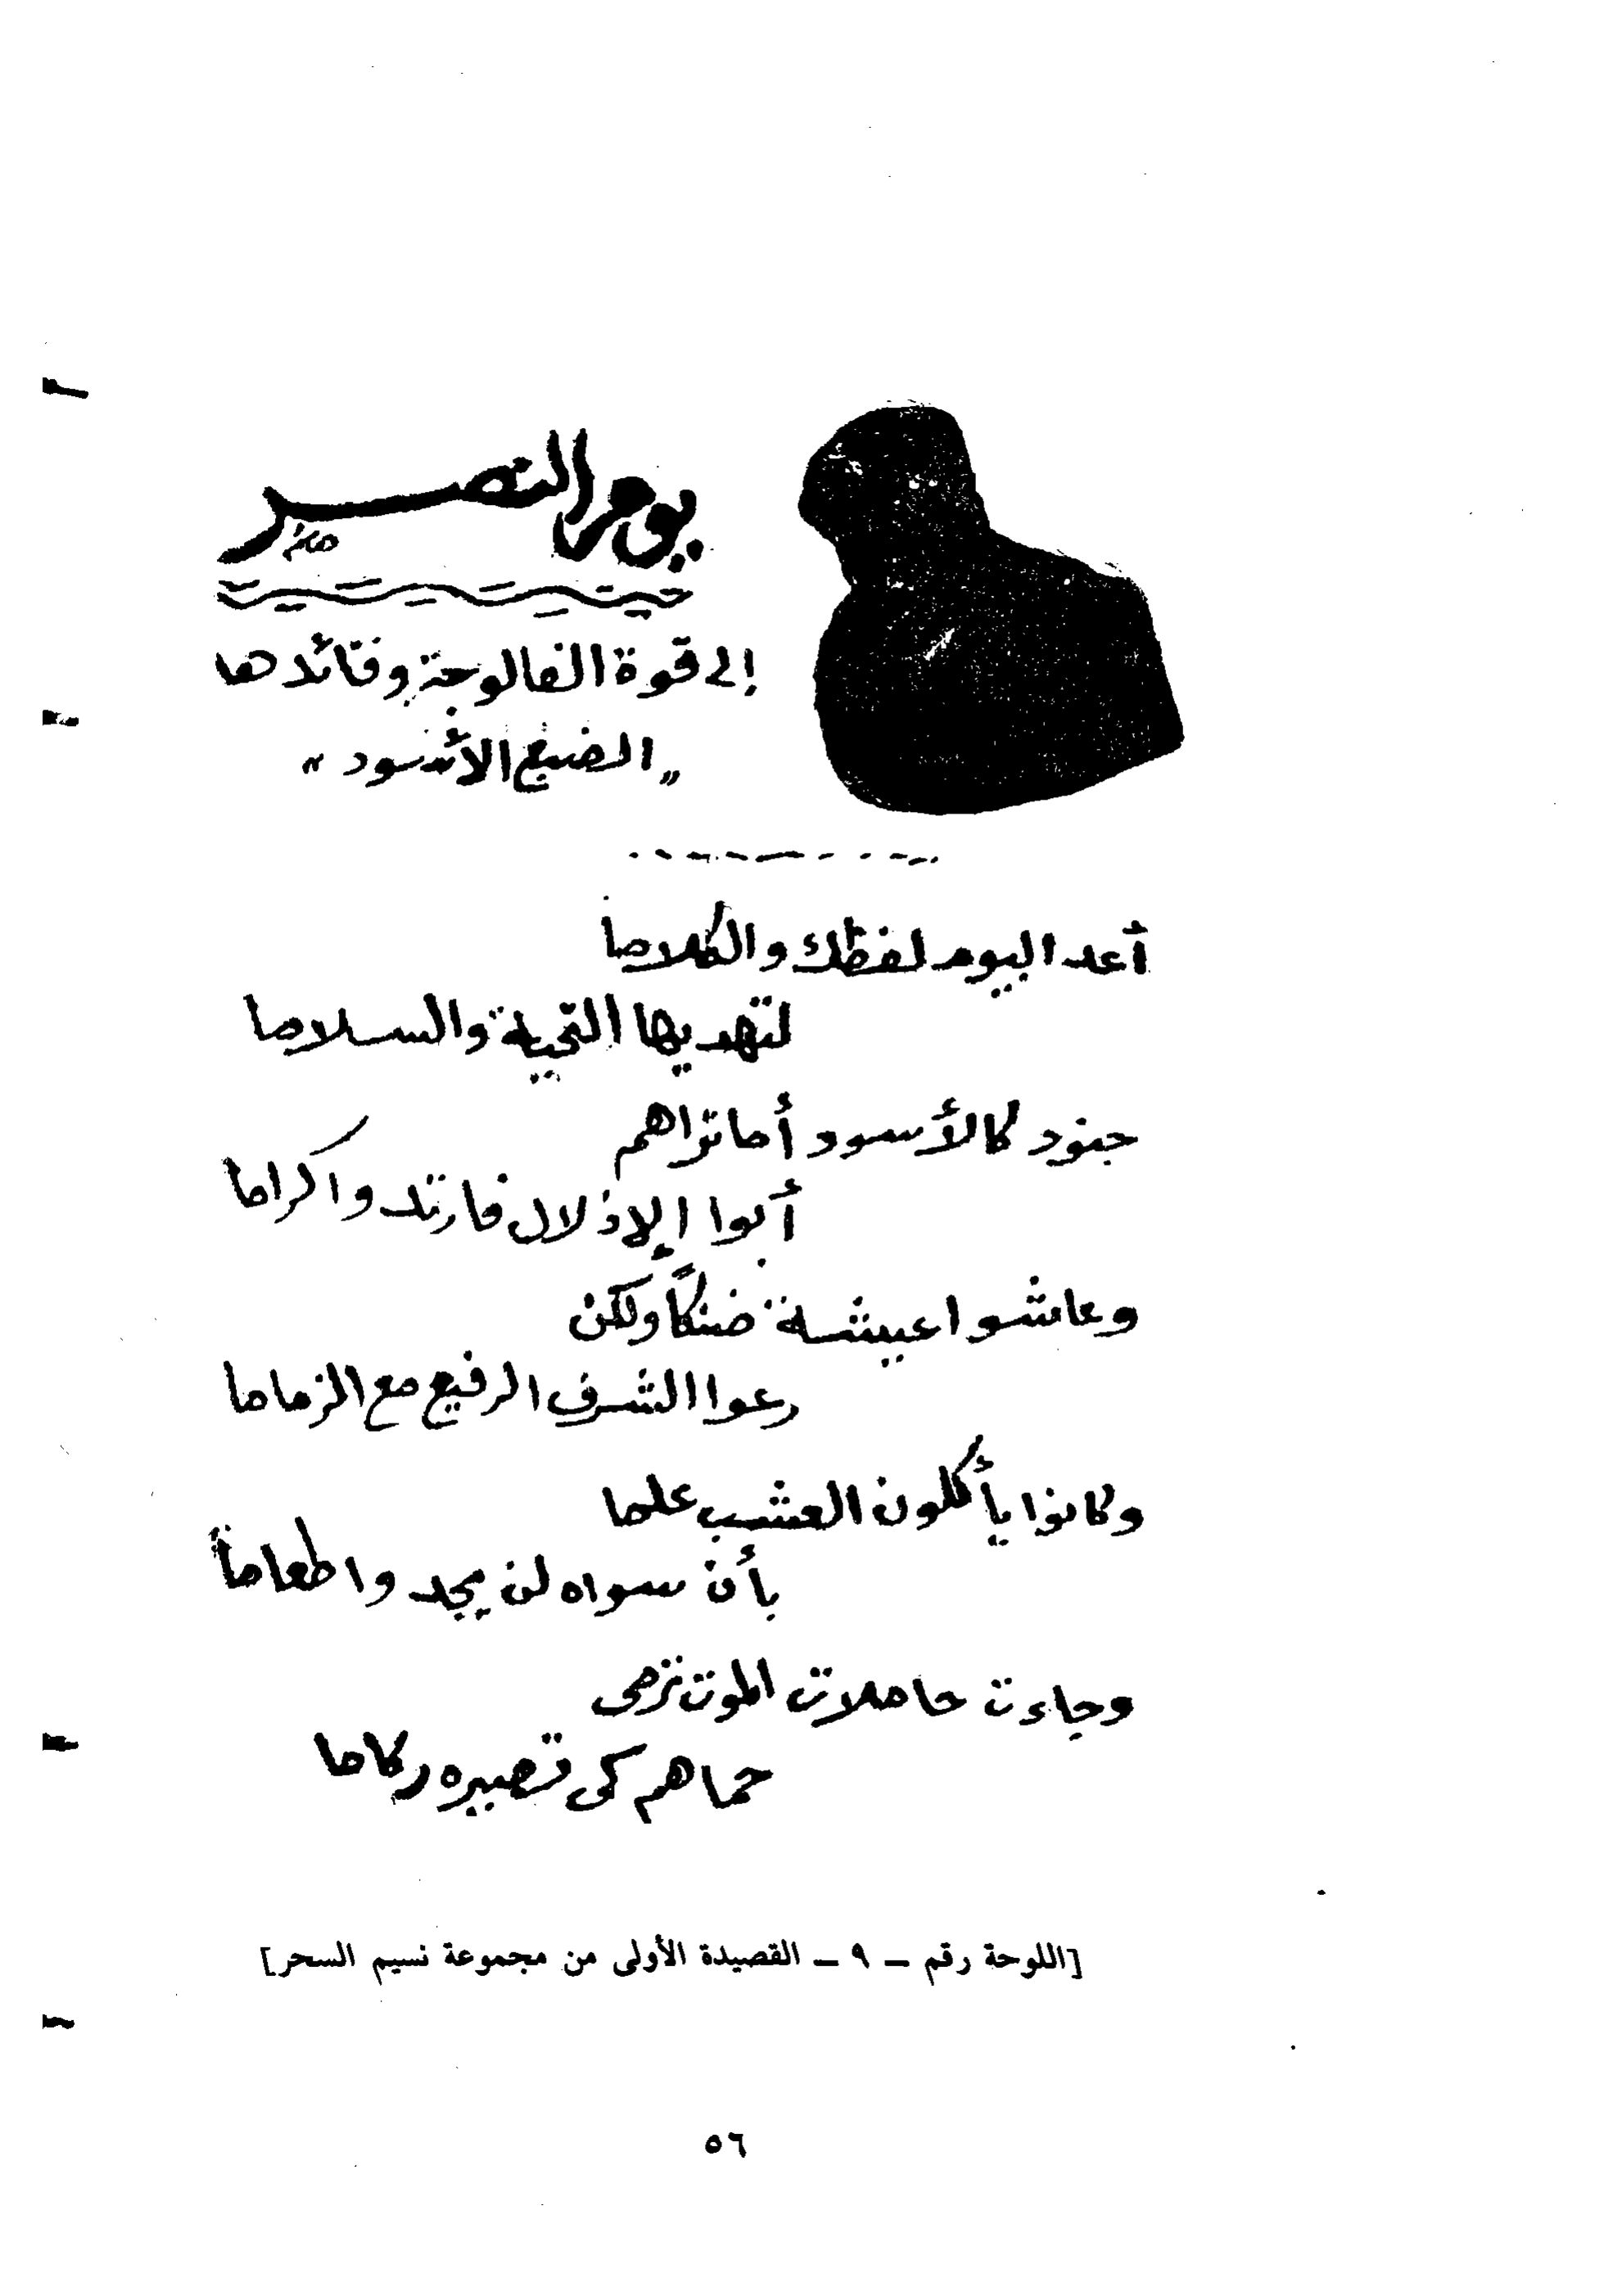 يوم النصر
إلى قوة الفالوجة وقائدها
"الضبع الأسود"
أعد اليوم لفظك والكلاما
لتهديها التحية والسلاما
جنود كالأسود أما تراهم
أبوا الإذلال فارتدوا كراما
وعاشوا عيشة ضنكاً ولكن
رعوا الشرف الرفيع مع الزماما
وكانوا يأكلون العشب علما
بأن سواه لن يجدوا طعاماً
وجاءت حاملات الموت ترمى
حماهم كى تصيره ركاما
[اللوحة رقم – ٩ – القصيدة الأولى من مجموعة نسيم السحر]
٥٦